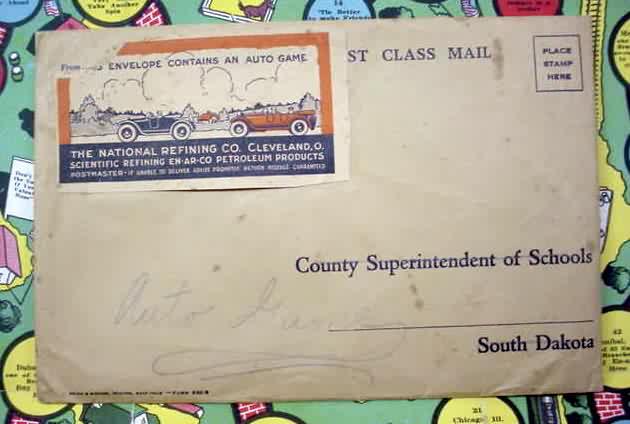 14
'Tis Better
to make Friends
Take Another
Spin
ENVELOPE CONTAINS AN AUTO GAME
THE NATIONAL REFINING CO. CLEVELAND, O.
SCIENTIFIC REFINING EN-AR-CO PETROLEUM PRODUCTS
POSTMASTER-IF UNABLE TO DELIVER ADVISE PROMPTLY. RETURN POSTAGE GUARANTEED
ST CLASS MAIL
PLACE
STAMP
HERE
County Superintendent of Schools
Auto Game
South Dakota
42
21
Chicago Ill.